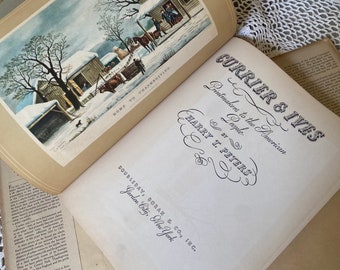 HOME TO THANKSGIVING
CURRIER & IVES
Printmakers to the American
People
BY
HARRY T. PETERS
DOUBLEDAY, DORAN & CO., INC.
Garden City, New York